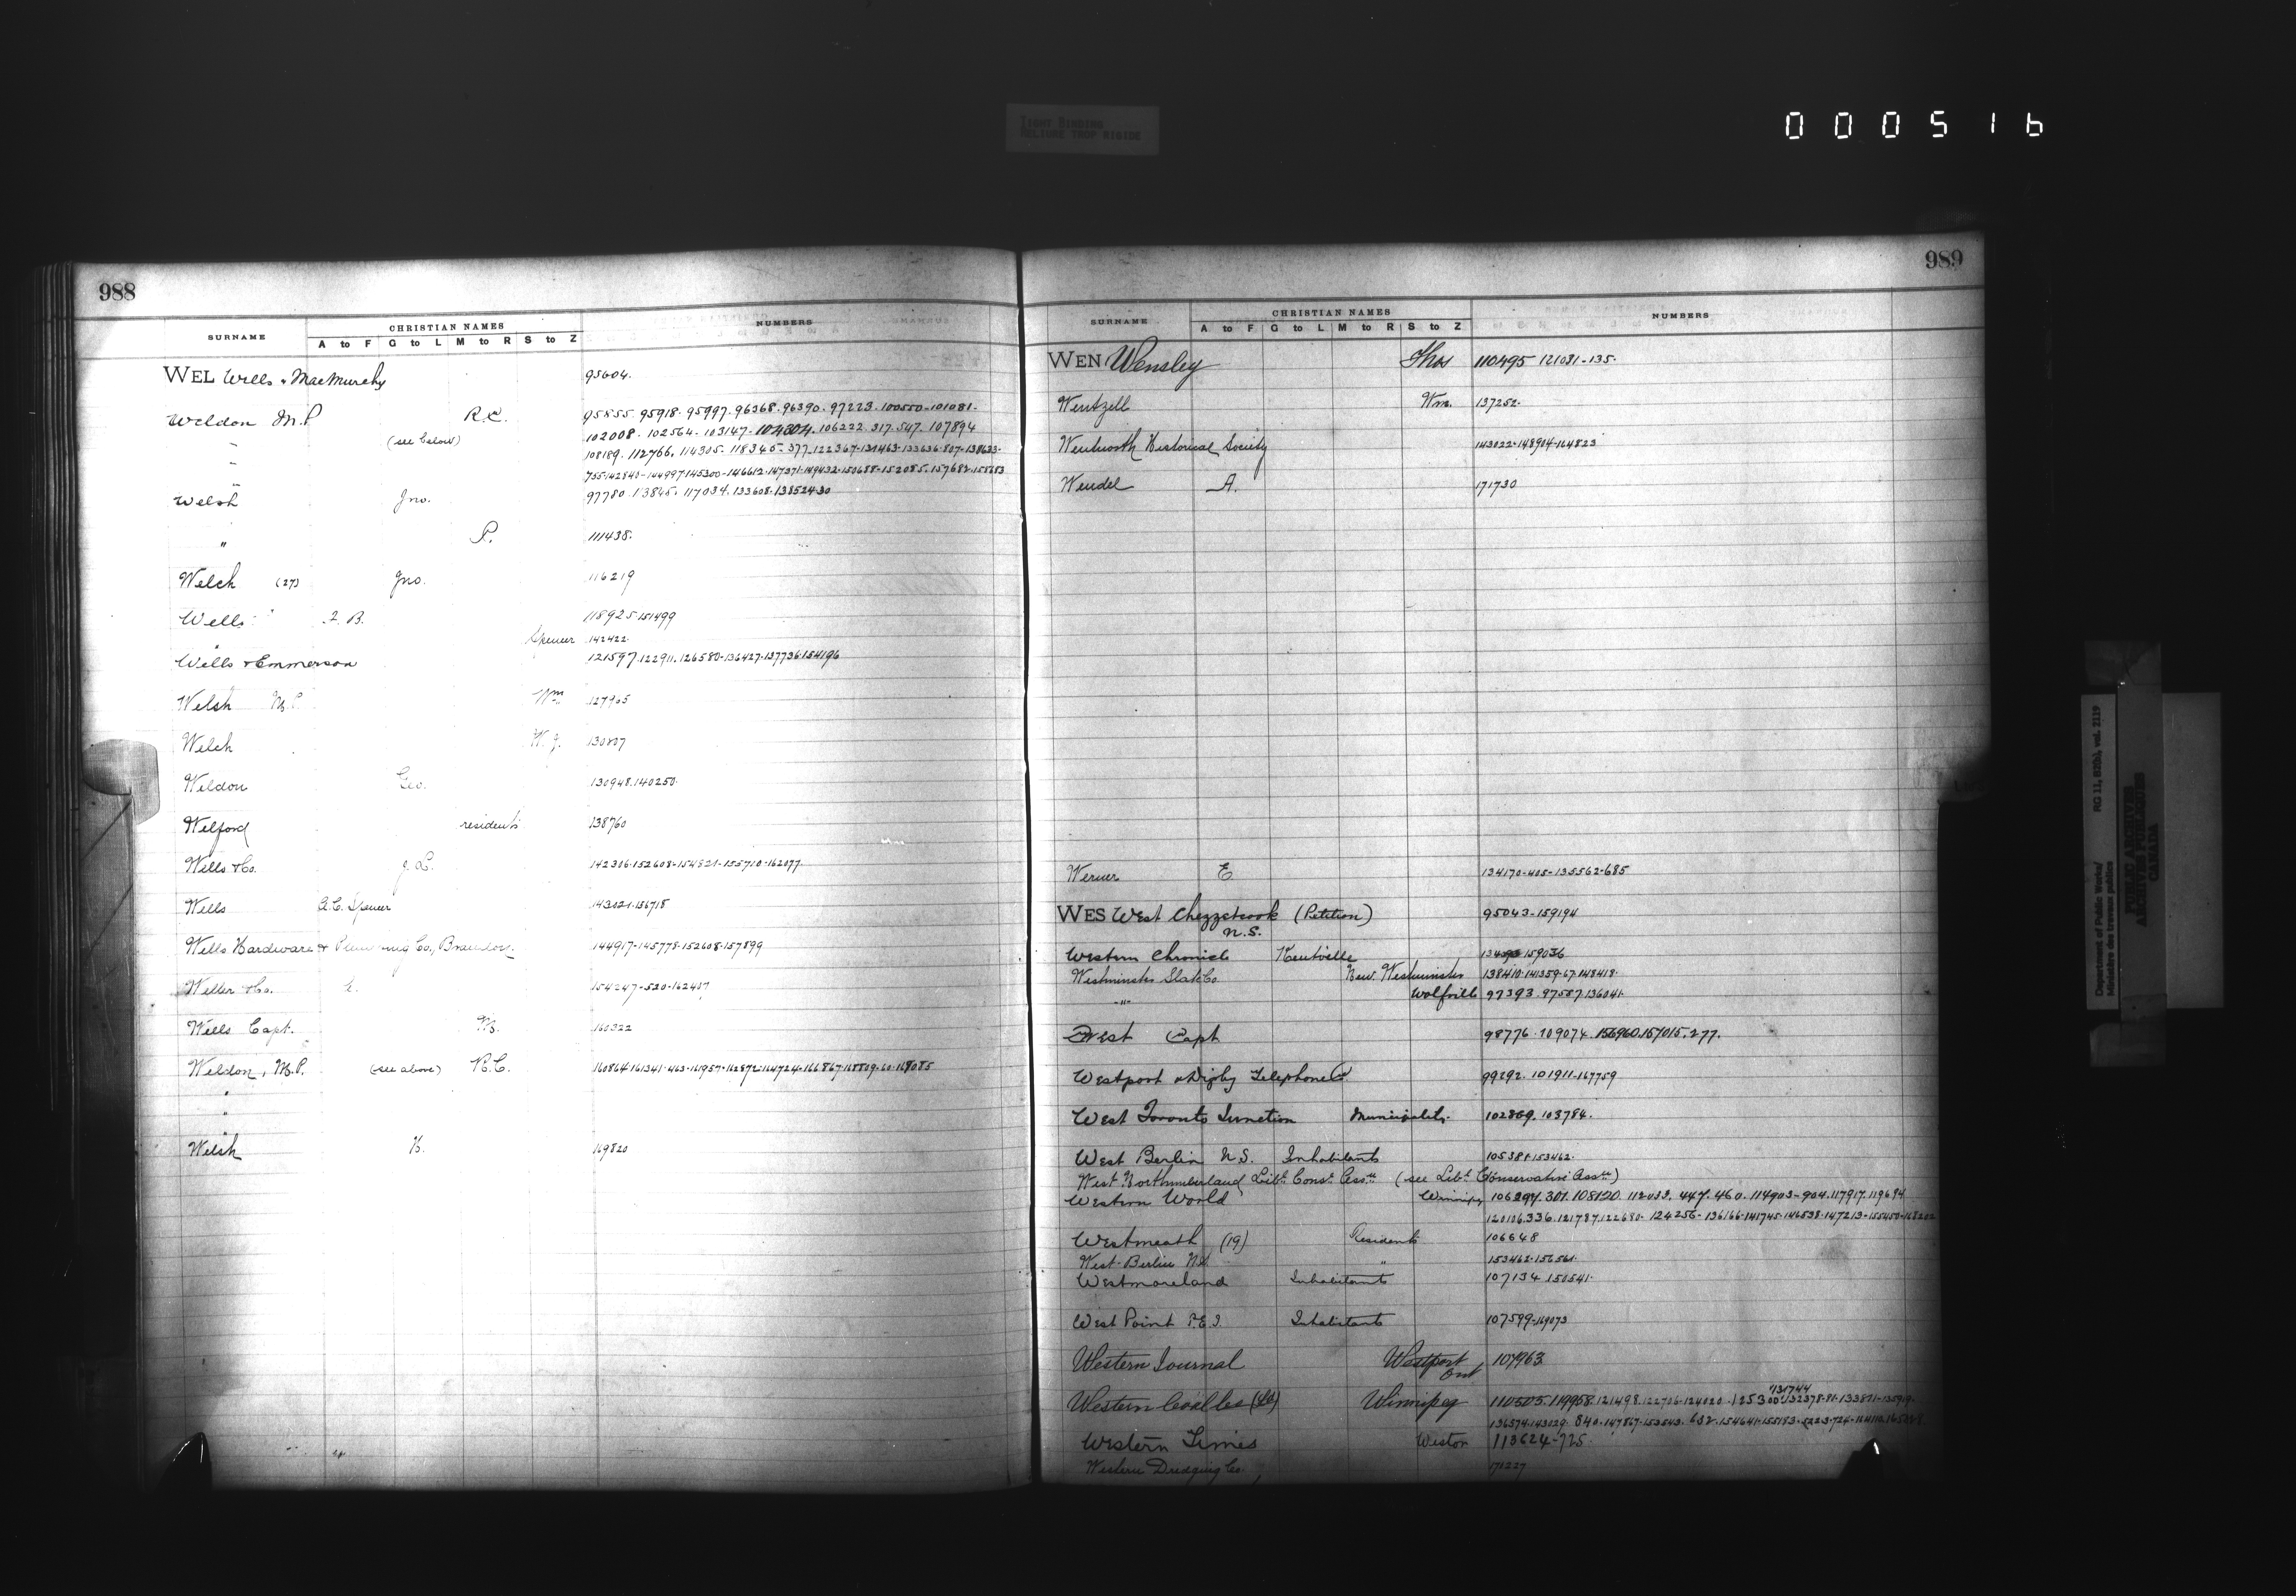 TIGHT BINDING
RELIURE TROP RIGIDE
000516
988
SURNAME CHRISTIAN NAMES NUMBERS
A to F G to L M to R S to Z
WEL Wells & MacMurchy 95604.
Weldon M.P. R.C. 95855. 95918. 95997. 96368. 96390. 97223. 100550-101081.
" (see below) 102008. 102564. 103147. 104304. 106222. 317. 547. 107894
" 108189. 112766. 114305. 118345-377-122367-131463-133636-807-138633.
" 735-142840-144997-145300-146612-147371-149432-150688-152085-157682-
Welsh Jno. 97780. 117034. 133608. 138524-30
" P. 111438.
Welch (27) Jno. 116219
Wells B. 118925-151499
" Spencer 142422.
Wells & Emmerson 121597. 122911. 126580-136427-137736-154196
Welsh M.P. Wm 127905
Welch W. J. 130807
Weldon Geo. 130948. 140250.
Welford residents 138760
Wells & Co. J. L. 142306-152608-154821-155710-162077.
Wells A.C. Spencer 143021-156718
Wells Hardware & Plumbing Co., Brandon. 144917-145778-152608-157899
Weller & Co. 154247-520-162407
Wells Capt. M. 160322
Weldon, M.P. (see above) R.C. 160864-161341-463-161957-162872-164724-166867-168809-60-169085
"
"
Welsh K. 169820
989
SURNAME CHRISTIAN NAMES NUMBERS
A to F G to L M to R S to Z
WEN Wensley Thos 110495 121031-135.
Wentzell Wm. 137252.
Wentworth Historical Society 143022-148904-164823
Wendel A. 171730
Werner E 134170-405-135562-685
WES West Chezzetcook (Petition) 95043-159194
N.S.
Western Chronicle Kentville 159036
Westminster Slate Co. New Westminster 138410-141359-67-148418.
" Wolfville 97393. 97587. 136041.
West Capt 98776. 109074. 156960. 157015. 277.
Westport & Digby Telephone Co. 99292. 101911-167759
West Toronto Junction Municipality. 102869. 103784.
West Berlin N.S. Inhabitants 105381-153462.
West Northumberland Libl. Consv. Assn. (see Libl. Conservative Assn.)
Western World Winnipeg 106297. 301. 108120. 112033. 447. 460. 114903-904. 117917. 119694
120106. 336. 121787. 122680. 124256-136166-141745-146538-147213-155450-
Westmeath (19) Residents 106648
West Berlin N.S. " 153462-156561.
Westmoreland Inhabitants 107134 150541.
West Point P.E.I. Inhabitants 107599-169073
Western Journal Westport 107963
Ont
131744
Western Coal Co (Ld) Winnipeg 110505. 119958. 121498. 122706. 124020. 125300. 132378-81-133871-
136574-143029. 840-147867-153543. 632-154641-155183-
Western Times Weston 113624-725.
Western Dredging Co. 171227
Department of Public Works/
Ministère des travaux publics
RG 11, B2(b), vol. 2119
PUBLIC ARCHIVES
ARCHIVES PUBLIQUES
CANADA